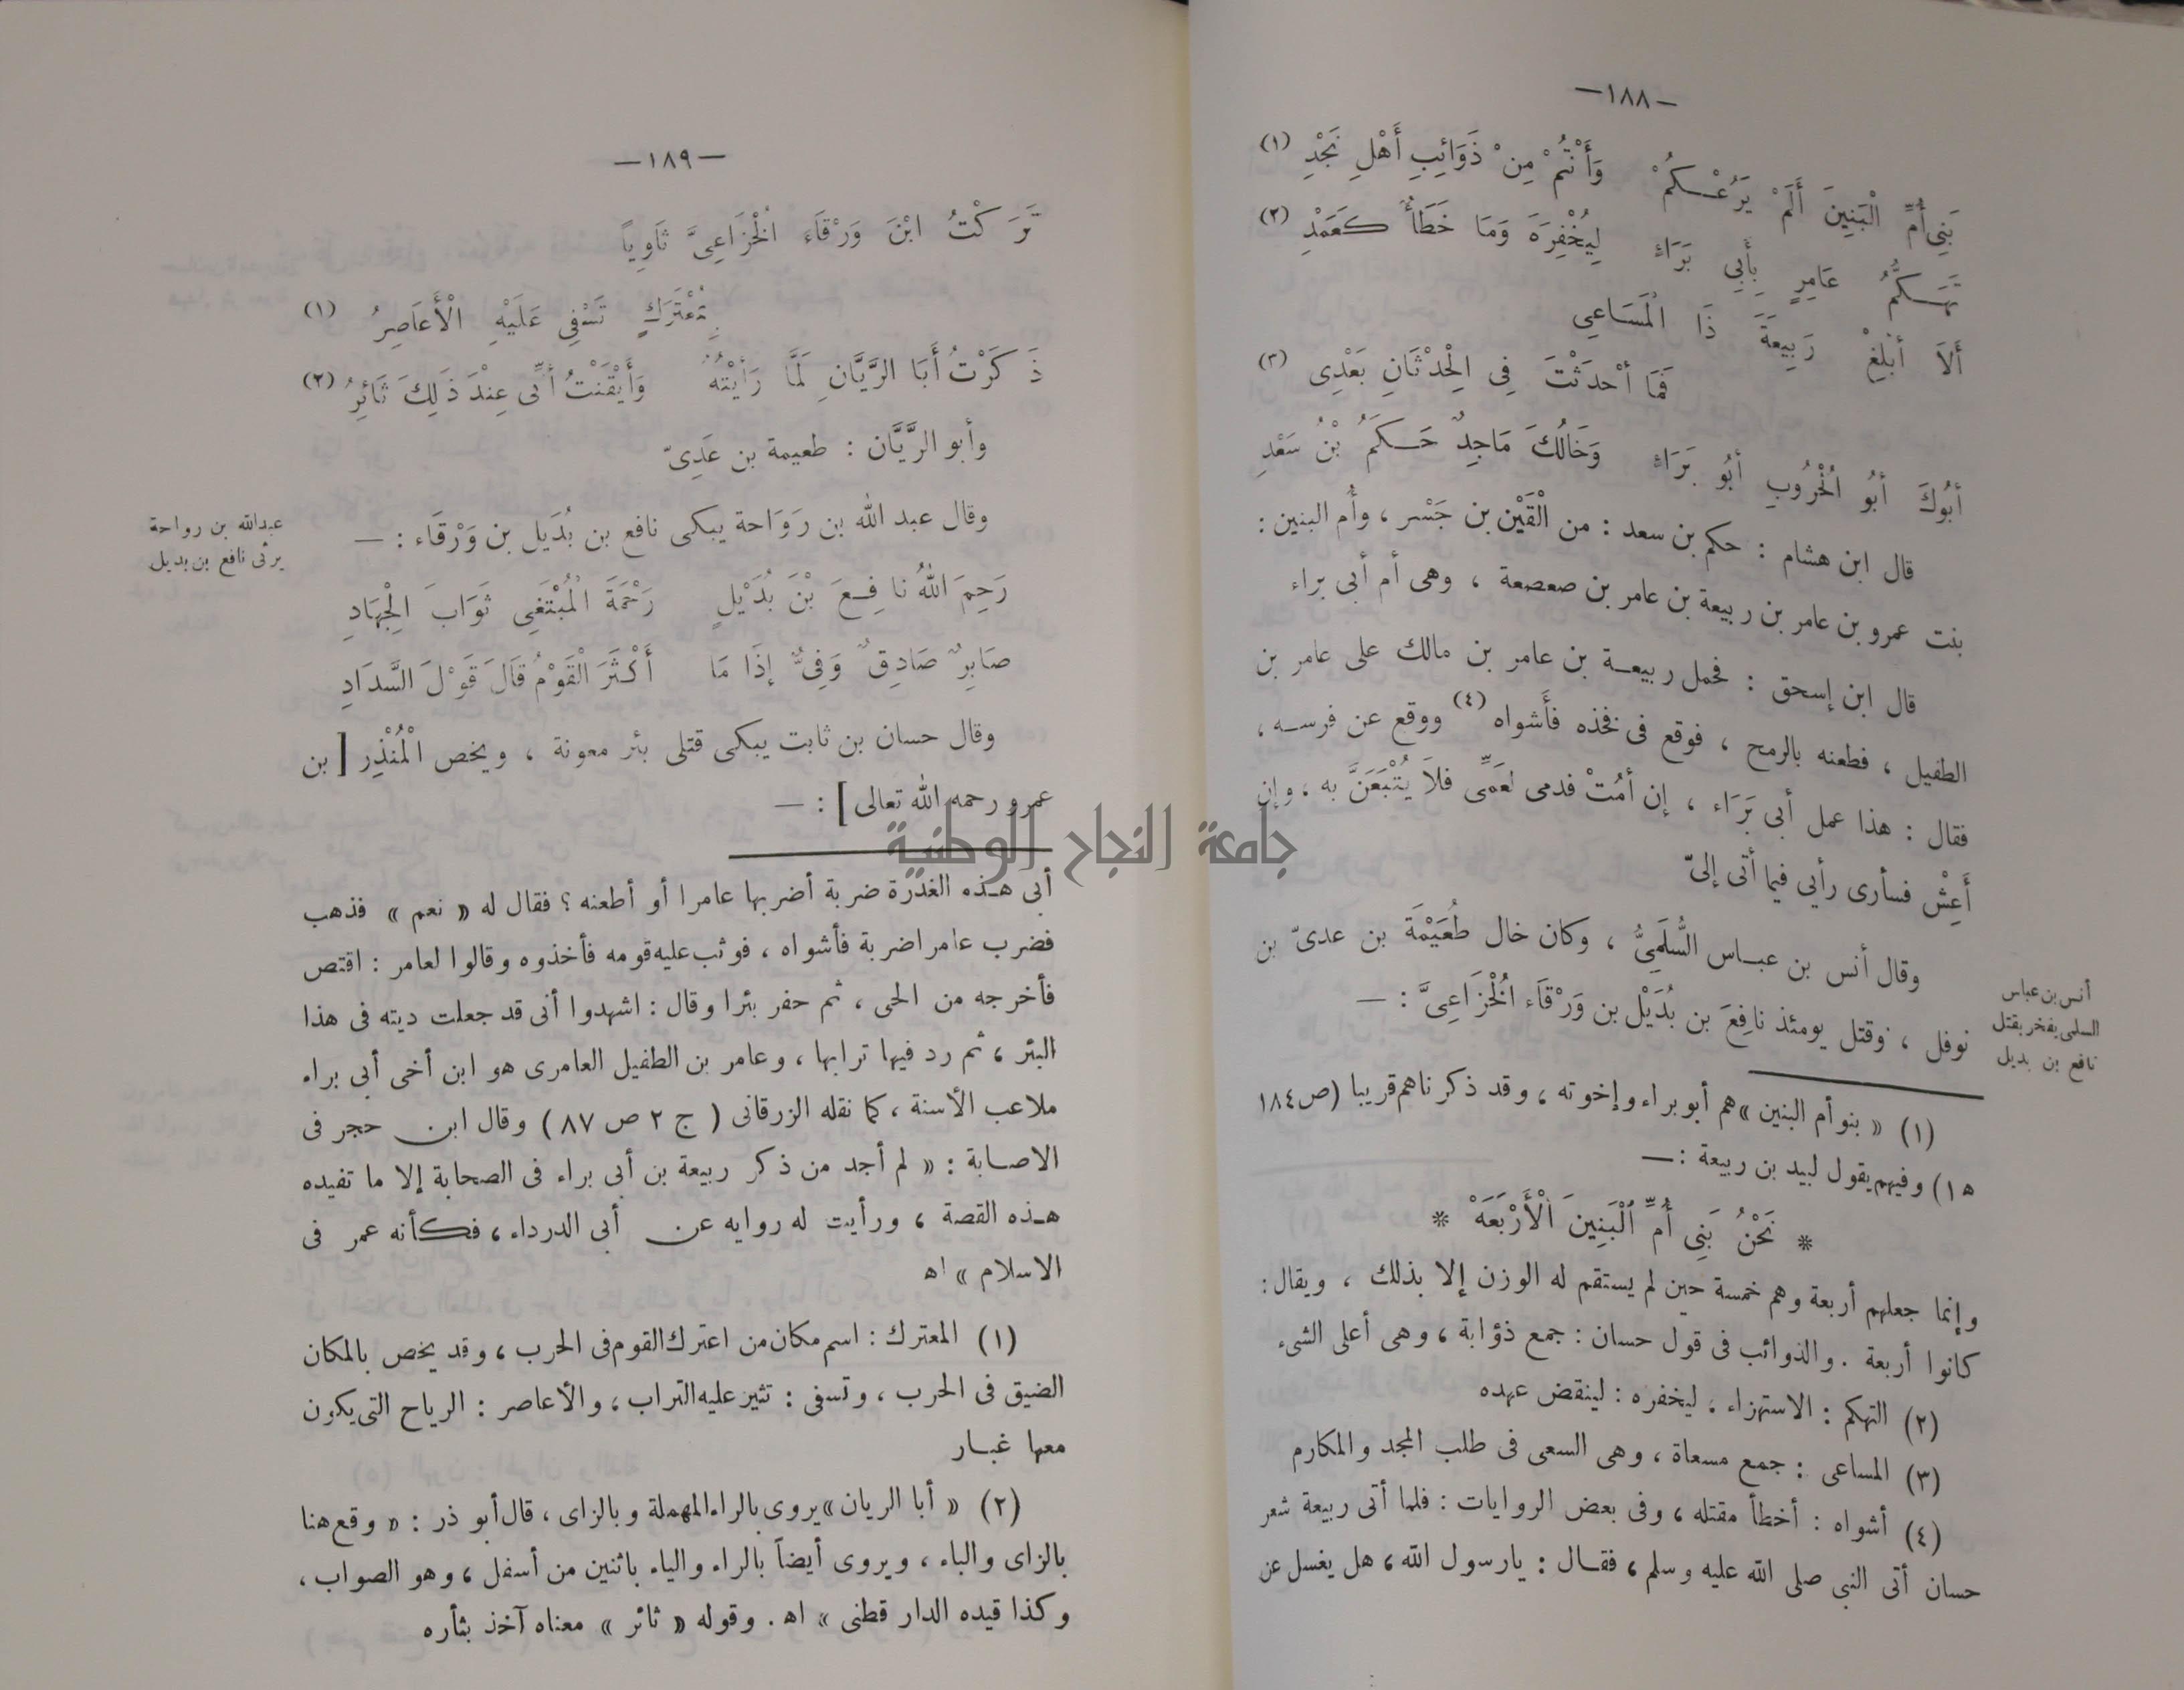 —١٨٨—
بَنِي أُمِّ الْبَنِينَ أَلَمْ يَرُعْكُمْ وَأَنْتُمْ مِنْ ذَوَائِبِ أَهْلِ نَجْدِ (١)
تَهَكُّمُ عَامِرٍ بِأَبِي بَرَاءٍ لِيُخْفِرَهُ وَمَا خَطَأٌ كَعَمْدِ (٢)
أَلاَ أَبْلِغْ رَبِيعَةَ ذَا الْمَسَاعِي
فَمَا أَحْدَثْتَ فِى الْحِدْثَانِ بَعْدِى (٣)
أَبُوكَ أَبُو الْحُرُوبِ أَبُو بَرَاءٍ وَخَالُكَ مَاجِدٌ حَكَمُ بْنُ سَعْدِ
قال ابن هشام : حكم بن سعد : من الْقَيْن بن جَسْر ، وأم البنين :
بنت عمرو بن عامر بن ربيعة بن عامر بن صعصعة ، وهى أم أبى براء
قال ابن إسحق : فحمل ربيعة بن عامر بن مالك على عامر بن
الطفيل ، فطعنه بالرمح ، فوقع فى فخذه فأشواه (٤) ووقع عن فرسه ،
فقال : هذا عمل أبى بَرَاء ، إن أمُتْ فدمى لعَمِّى فلاَ يُتْبَعَنَّ به ، وإن
أَعِشْ فسأرى رأيي فيما أتى إلىّ
وقال أنس بن عباس السُّلَمِىُّ ، وكان خال طُعَيْمَةَ بن عدىّ بن
نوفل ، وقتل يومئذ نافِعَ بن بُدَيْل بن وَرْقَاء الْخُزَاعِىَّ : —
أنس بن عباس
السلمى يفخر بقتل
نافع بن بديل
(١) « بنو أم البنين » هم أبو براء وإخوته ، وقد ذكرناهم قريبا (ص ١٨٤
ه ١) وفيهم يقول لبيد بن ربيعة : —
* نَحْنُ بَنِى أُمِّ الْبَنِينَ الْأَرْبَعَهْ *
وإنما جعلهم أربعة وهم خمسة حين لم يستقم له الوزن إلا بذلك ، ويقال :
كانوا أربعة . والذوائب فى قول حسان : جمع ذؤابة ، وهى أعلى الشىء
(٢) التهكم : الاستهزاء ، ليخفره : لينقض عهده
(٣) المساعى : جمع مسعاة ، وهى السعى فى طلب المجد والمكارم
(٤) أشواه : أخطأ مقتله ، وفى بعض الروايات : فلما أتى ربيعة شعر
حسان أتى النبى صلى الله عليه وسلم ، فقال : يارسول الله ، هل يغسل عن
—١٨٩—
تَرَكْتُ ابْنَ وَرْقَاءَ الْخُزَاعِىَّ ثَاوِياً
بِمُعْتَرَكٍ تَسْفِى عَلَيْهِ الْأَعَاصِرُ (١)
ذَكَرْتُ أَبَا الرَّيَّانِ لَمَّا رَأَيْتُهُ وَأَيْقَنْتُ أَنِّى عِنْدَ ذَلِكَ ثَائِرُ (٢)
وأبو الرَّيَّان : طعيمة بن عَدِىّ
وقال عبد الله بن رَوَاحة يبكى نافع بن بُدَيل بن وَرْقَاء : —
عبدالله بن رواحة
يرثى نافع بن بديل
رَحِمَ اللهُ نافِعَ بْنَ بُدَيْلٍ رَحْمَةَ الْمُبْتَغِى ثَوَابَ الْجِهَادِ
صَابِرٌ صَادِقٌ وَفِىٌّ إِذَا مَا أَكْثَرَ الْقَوْمُ قَالَ قَوْلَ السَّدَادِ
وقال حسان بن ثابت يبكى قتلى بئر معونة ، ويخص الْمُنْذِر [ بن
عمرو رحمه الله تعالى ] : —
أبى هذه الغدرة ضربة أضربها عامرا أو أطعنه ؟ فقال له « نعم » فذهب
فضرب عامرا ضربة فأشواه ، فوثب عليه قومه فأخذوه وقالوا لعامر : اقتص
فأخرجه من الحى ، ثم حفر بئرا وقال : اشهدوا أنى قد جعلت ديته فى هذا
البئر ، ثم رد فيها ترابها ، وعامر بن الطفيل العامرى هو ابن أخى أبى براء
ملاعب الأسنة ، كما نقله الزرقانى ( ج ٢ ص ٨٧ ) وقال ابن حجر فى
الاصابة : « لم أجد من ذكر ربيعة بن أبى براء فى الصحابة إلا ما تفيده
هذه القصة ، ورأيت له روايه عن أبى الدرداء ، فكأنه عمر فى
الاسلام » اه
(١) المعترك : اسم مكان من اعترك القوم فى الحرب ، وقد يخص بالمكان
الضيق فى الحرب ، وتسفى : تثير عليه التراب ، والأعاصر : الرياح التى يكون
معها غبار
(٢) « أبا الريان » يروى بالراء المهملة وبالزاى ، قال أبو ذر : « وقع هنا
بالزاى والباء ، ويروى أيضاً بالراء والياء باثنين من أسفل ، وهو الصواب ،
وكذا قيده الدار قطنى » اه . وقوله « ثائر » معناه آخذ بثأره
جامعة النجاح الوطنية